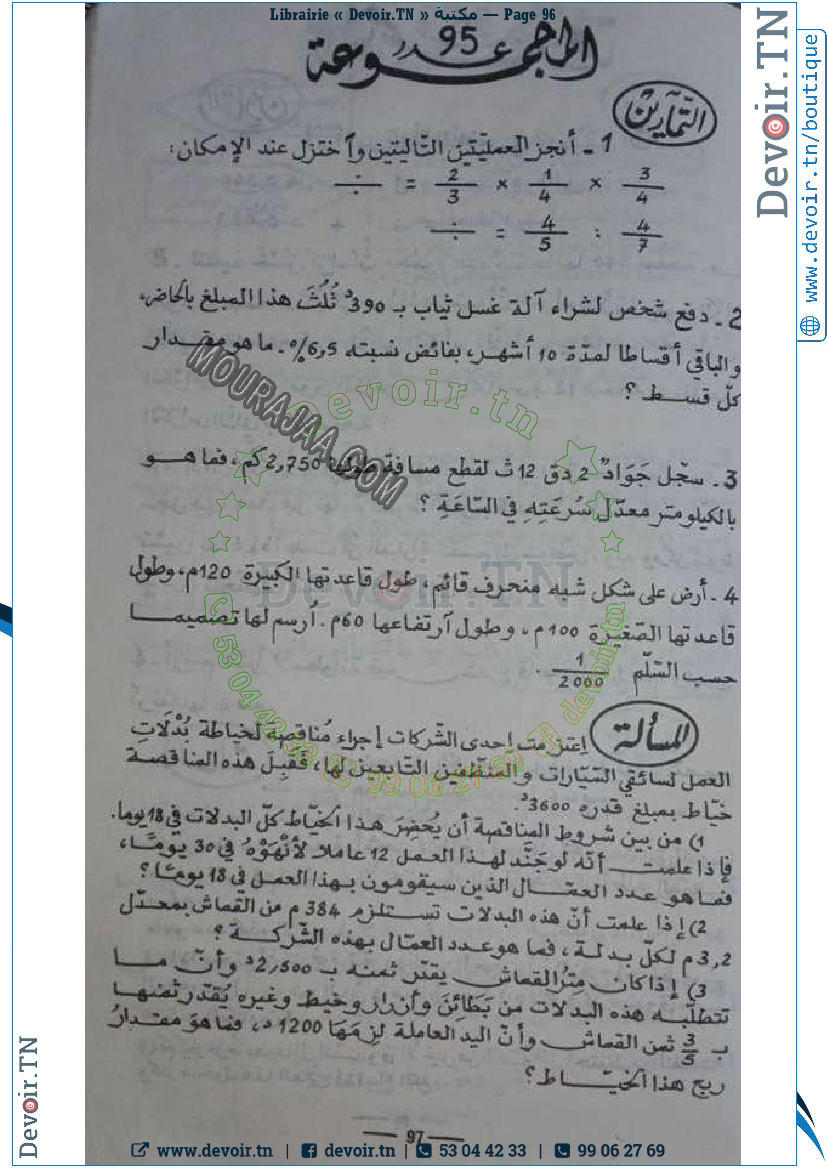 Librairie « Devoir.TN » مكتبة — Page 96
المجموعة عدد 95
التمارين
1 - أنجز العمليتين التاليتين وآختزل عند الإمكان:
3/4 × 1/4 × 2/3 = ـــ ÷ ـــ
4/7 : 4/5 = ـــ ÷ ـــ
2 - دفع شخص لشراء آلة غسل ثياب بـ 390د ثُلُثَ هذا المبلغ بالحاضر،
والباقي أقساطا لمدة 10 أشهر، بفائض نسبته 6,5%. ما هو مقدار
كلّ قسط ؟
3 - سجّل جَوَادٌ 2 دق 12 ث لقطع مسافة طولها 2,750 كم، فما هو
بالكيلومتر معدّل سُرعَتِهِ في السَّاعَةِ ؟
4 - أرض على شكل شبه منحرف قائم، طول قاعدتها الكبيرة 120م، وطول
قاعدتها الصّغيرة 100م، وطول آرتفاعها 60م. اُرسم لها تصميما
حسب السّلّم 1/2000.
المسألة
اِعتزمت إحدى الشّركات إجراء مُناقصة لخياطة بُدْلَاتِ
العمل لسائقي السّيّارات والمنظّفين التابعين لها، فَقَبِلَ هذه المناقصة
خيّاط بمبلغ قدره 3600د.
1) من بين شروط المناقصة أن يُحضِرَ هذا الخيّاط كلّ البدلات في 18 يوما.
فإذا علمت أنّه لو جَنَّد لهذا العمل 12 عاملا لأنْهَوْهُ في 30 يومًا،
فما هو عدد العمّال الذين سيقومون بهذا العمل في 18 يومًا ؟
2) إذا علمت أنّ هذه البدلات تستلزم 384 م من القماش بمعدّل
3,2 م لكلّ بدلة، فما هو عدد العمّال بهذه الشّركة ؟
3) إذا كان مِترُ القماش يقدّر ثمنه بـ 2,500د وأنّ ما
تتطلّبه هذه البدلات من بَطَائنَ وأزرار وخيط وغيره يُقدّر ثمنها
بـ 3/5 ثمن القماش وأنّ اليد العاملة لزمَهَا 1200 د، فما هو مقدارُ
ربح هذا الخيّاط ؟
97
MOURAJAA.COM
devoir.tn
Devoir.TN
53 04 42 33
99 06 27 69
devoir.tn
Devoir.TN
www.devoir.tn/boutique
Devoir.TN
www.devoir.tn | devoir.tn | 53 04 42 33 | 99 06 27 69